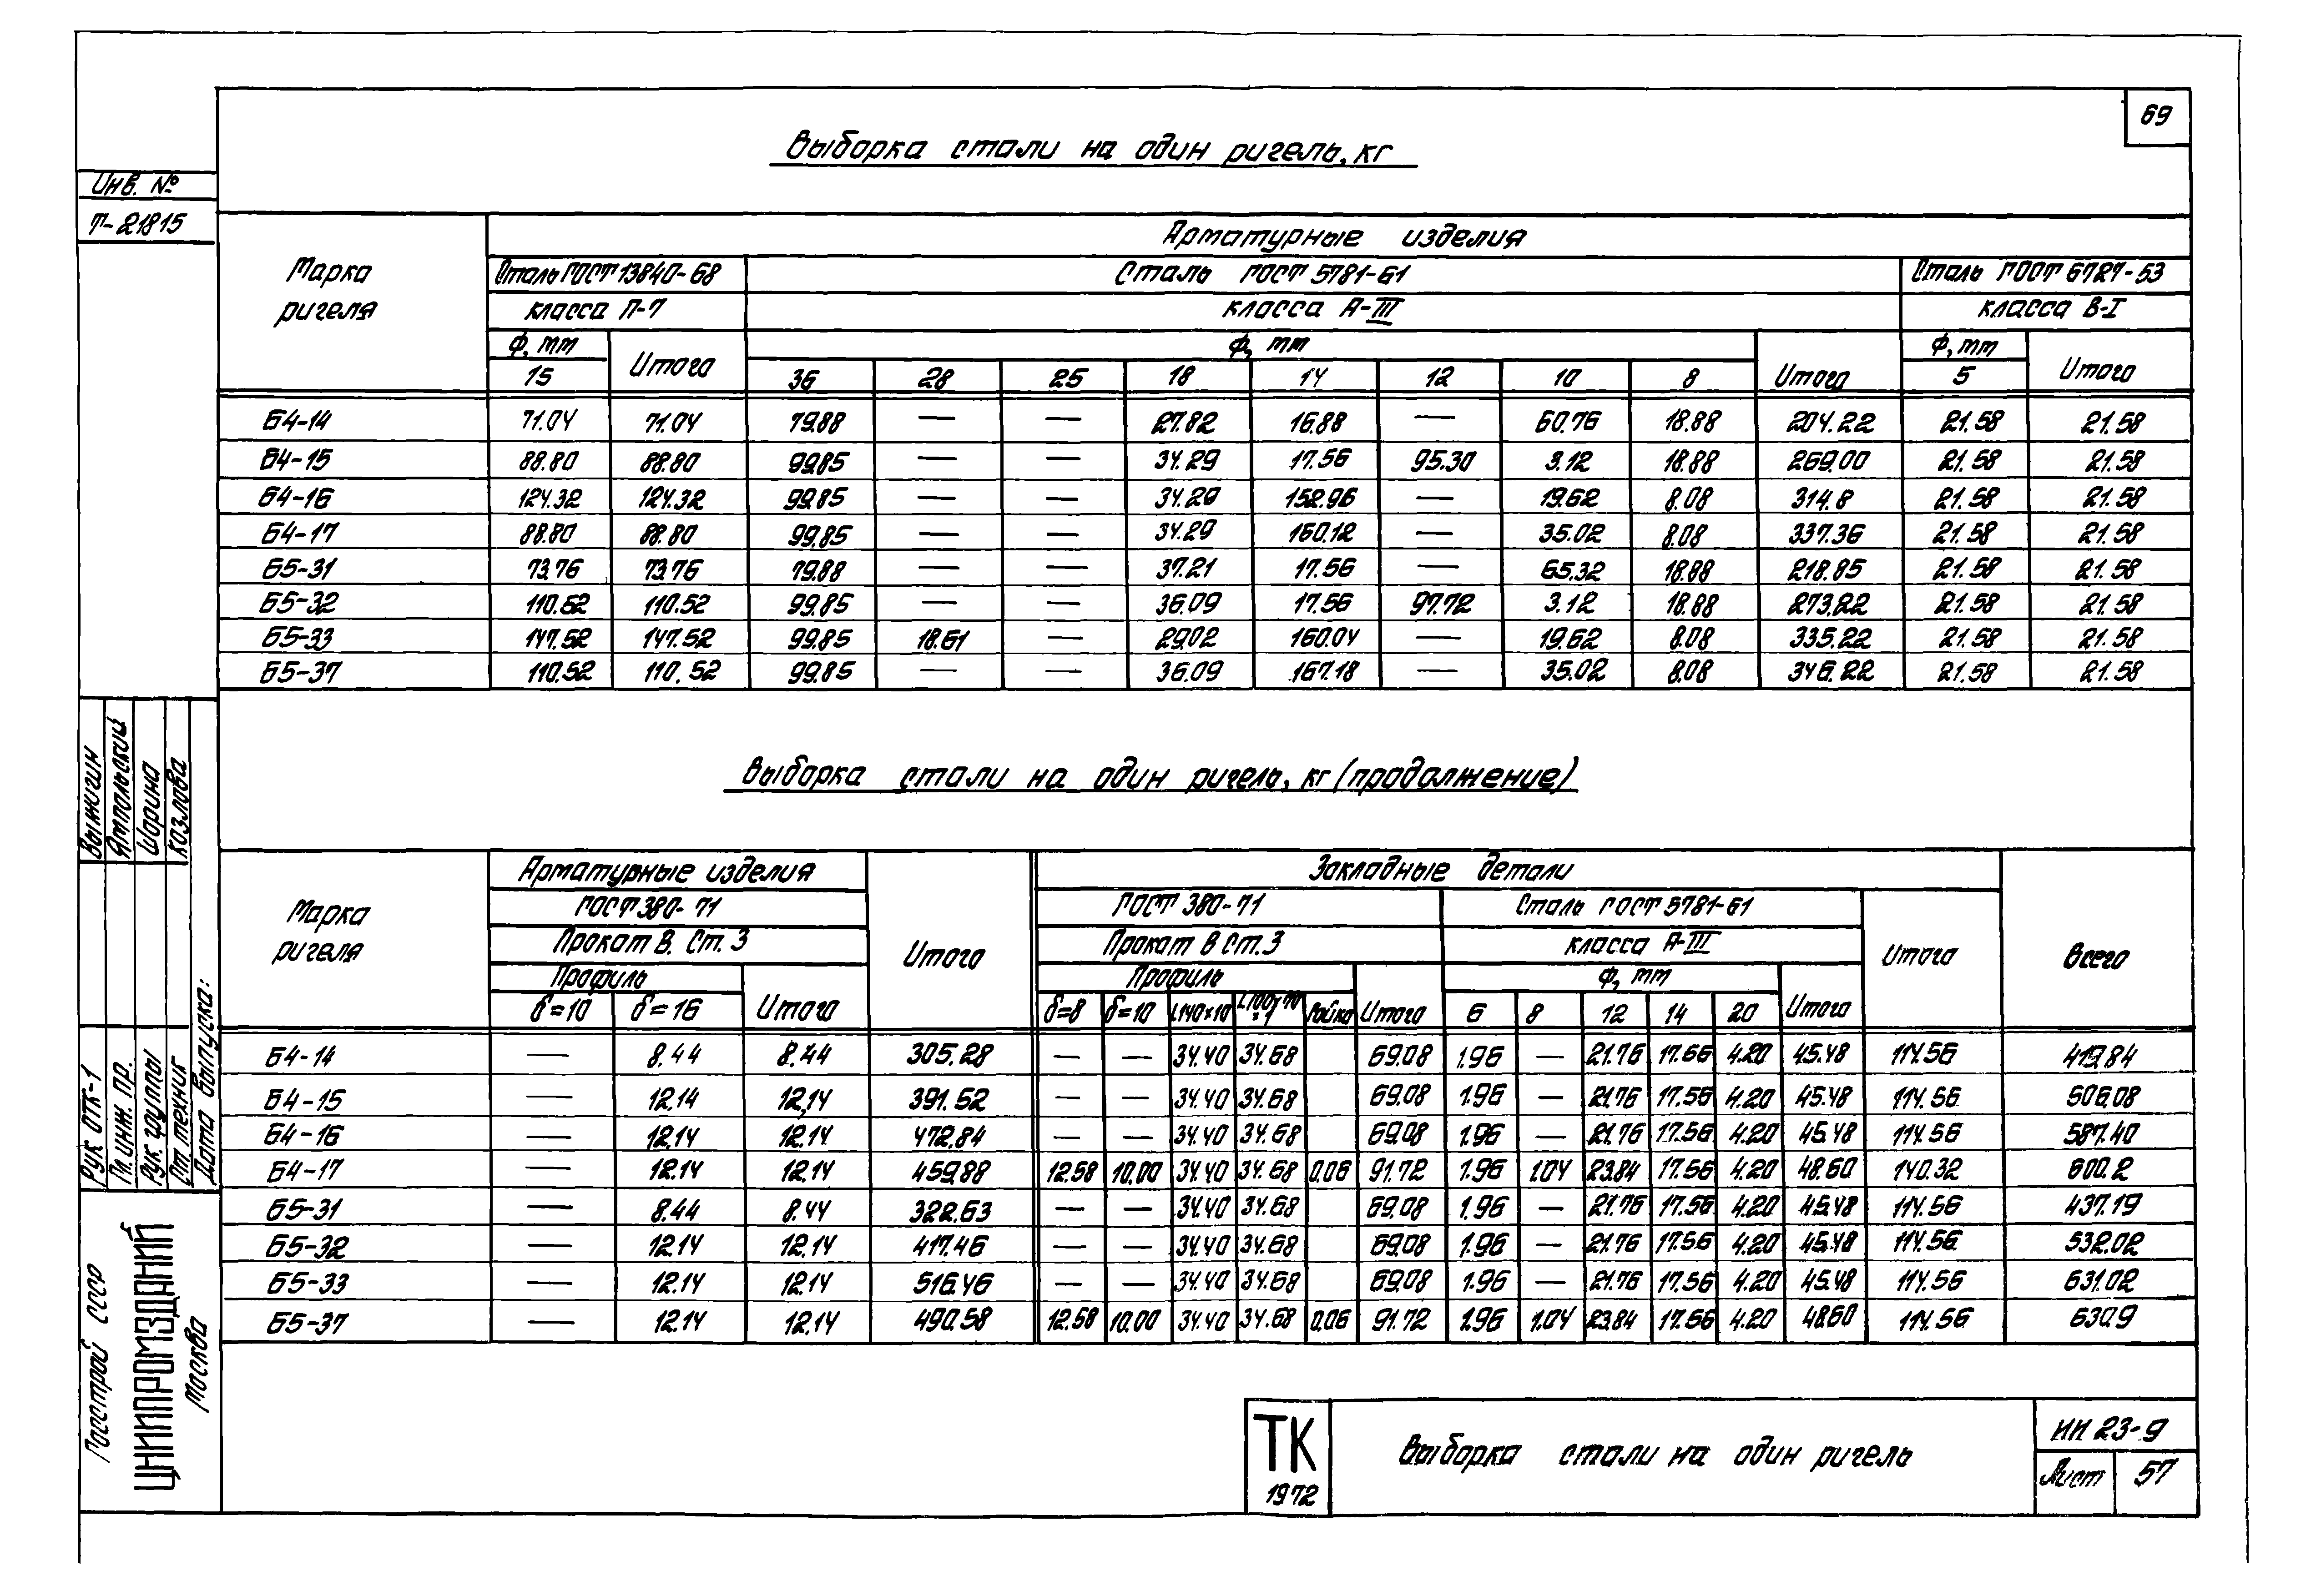 69
Выборка стали на один ригель, кг
Инв. №
Т-21815
Марка ригеля
Арматурные изделия
Сталь ГОСТ 13840-68
Сталь ГОСТ 5781-61
Сталь ГОСТ 6727-53
класса П-7
класса А-III
класса В-I
Ф, мм Итого Ф, мм Итого Ф, мм Итого
15 36 28 25 18 14 12 10 8 5
Б4-14 71.04 71.04 79.88 — — 27.82 16.88 — 60.76 18.88 204.22 21.58 21.58
Б4-15 88.80 88.80 99.85 — — 34.29 17.56 95.30 3.12 18.88 269.00 21.58 21.58
Б4-16 124.32 124.32 99.85 — — 34.29 152.96 — 19.62 8.08 314.8 21.58 21.58
Б4-17 88.80 88.80 99.85 — — 34.29 160.12 — 35.02 8.08 337.36 21.58 21.58
Б5-31 73.76 73.76 79.88 — — 37.21 17.56 — 65.32 18.88 218.85 21.58 21.58
Б5-32 110.52 110.52 99.85 — — 36.09 17.56 97.72 3.12 18.88 273.22 21.58 21.58
Б5-33 147.52 147.52 99.85 18.61 — 29.02 160.04 — 19.62 8.08 335.22 21.58 21.58
Б5-37 110.52 110.52 99.85 — — 36.09 167.18 — 35.02 8.08 346.22 21.58 21.58
Выборка стали на один ригель, кг (продолжение)
Марка ригеля
Арматурные изделия Итого Закладные детали Всего
ГОСТ 380-71 ГОСТ 380-71 Сталь ГОСТ 5781-61 Итого
Прокат В. Ст. 3 Прокат В Ст. 3 класса А-III
Профиль Итого Профиль Итого Ф, мм Итого
δ=10 δ=16 δ=8 δ=10 L140×10 6 8 12 14 20
Б4-14 — 8.44 8.44 305.28 — — 34.40 34.68 69.08 1.96 — 21.76 17.56 4.20 45.48 114.56 419.84
Б4-15 — 12.14 12.14 391.52 — — 34.40 34.68 69.08 1.96 — 21.76 17.56 4.20 45.48 114.56 506.08
Б4-16 — 12.14 12.14 472.84 — — 34.40 34.68 69.08 1.96 — 21.76 17.56 4.20 45.48 114.56 587.40
Б4-17 — 12.14 12.14 459.88 12.58 10.00 34.40 34.68 0.06 91.72 1.96 1.04 23.84 17.56 4.20 48.60 140.32 600.2
Б5-31 — 8.44 8.44 322.63 — — 34.40 34.68 69.08 1.96 — 21.76 17.56 4.20 45.48 114.56 437.19
Б5-32 — 12.14 12.14 417.46 — — 34.40 34.68 69.08 1.96 — 21.76 17.56 4.20 45.48 114.56 532.02
Б5-33 — 12.14 12.14 516.46 — — 34.40 34.68 69.08 1.96 — 21.76 17.56 4.20 45.48 114.56 631.02
Б5-37 — 12.14 12.14 490.58 12.58 10.00 34.40 34.68 0.06 91.72 1.96 1.04 23.84 17.56 4.20 48.60 114.56 630.9
Рук. ОТК-1 Выжигин
Гл. инж. пр. Ямпольский
Рук. группы Шорина
Ст. техник Козлова
Дата выпуска:
Госстрой СССР
ЦНИИПРОМЗДАНИЙ
Москва
ТК
1972
Выборка стали на один ригель
ИИ 23-9
Лист 57